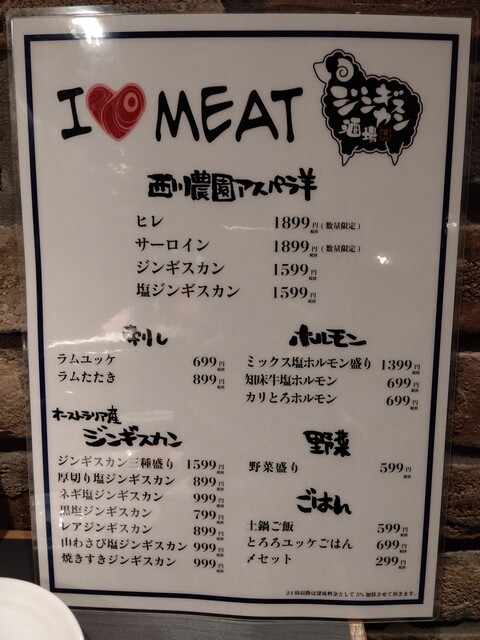 I MEAT
ジンギスカン
酒場
西川農園アスパラ羊
ヒレ 1899円(数量限定)
サーロイン 1899円(数量限定)
ジンギスカン 1599円
塩ジンギスカン 1599円
刺し
ラムユッケ 699円
ラムたたき 899円
オーストラリア産
ジンギスカン
ジンギスカン三種盛り 1599円
厚切り塩ジンギスカン 899円
ネギ塩ジンギスカン 999円
黒塩ジンギスカン 799円
レアジンギスカン 899円
山わさび塩ジンギスカン 999円
焼きすきジンギスカン 999円
ホルモン
ミックス塩ホルモン盛り 1399円
知床牛塩ホルモン 699円
カリとろホルモン 699円
野菜
野菜盛り 599円
ごはん
土鍋ご飯 599円
とろろユッケごはん 699円
〆セット 299円
21時以降は深夜料金として5%加算させて頂きます。